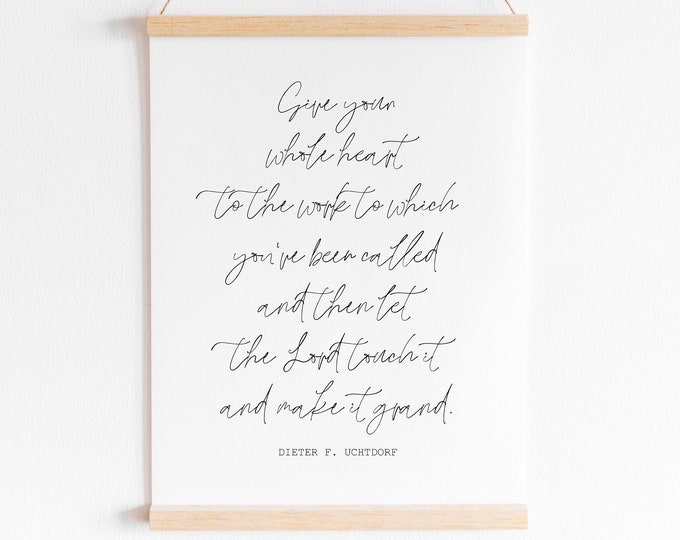 Give your
whole heart
to the work to which
you've been called
and then let
the Lord touch it
and make it grand.
DIETER F. UCHTDORF